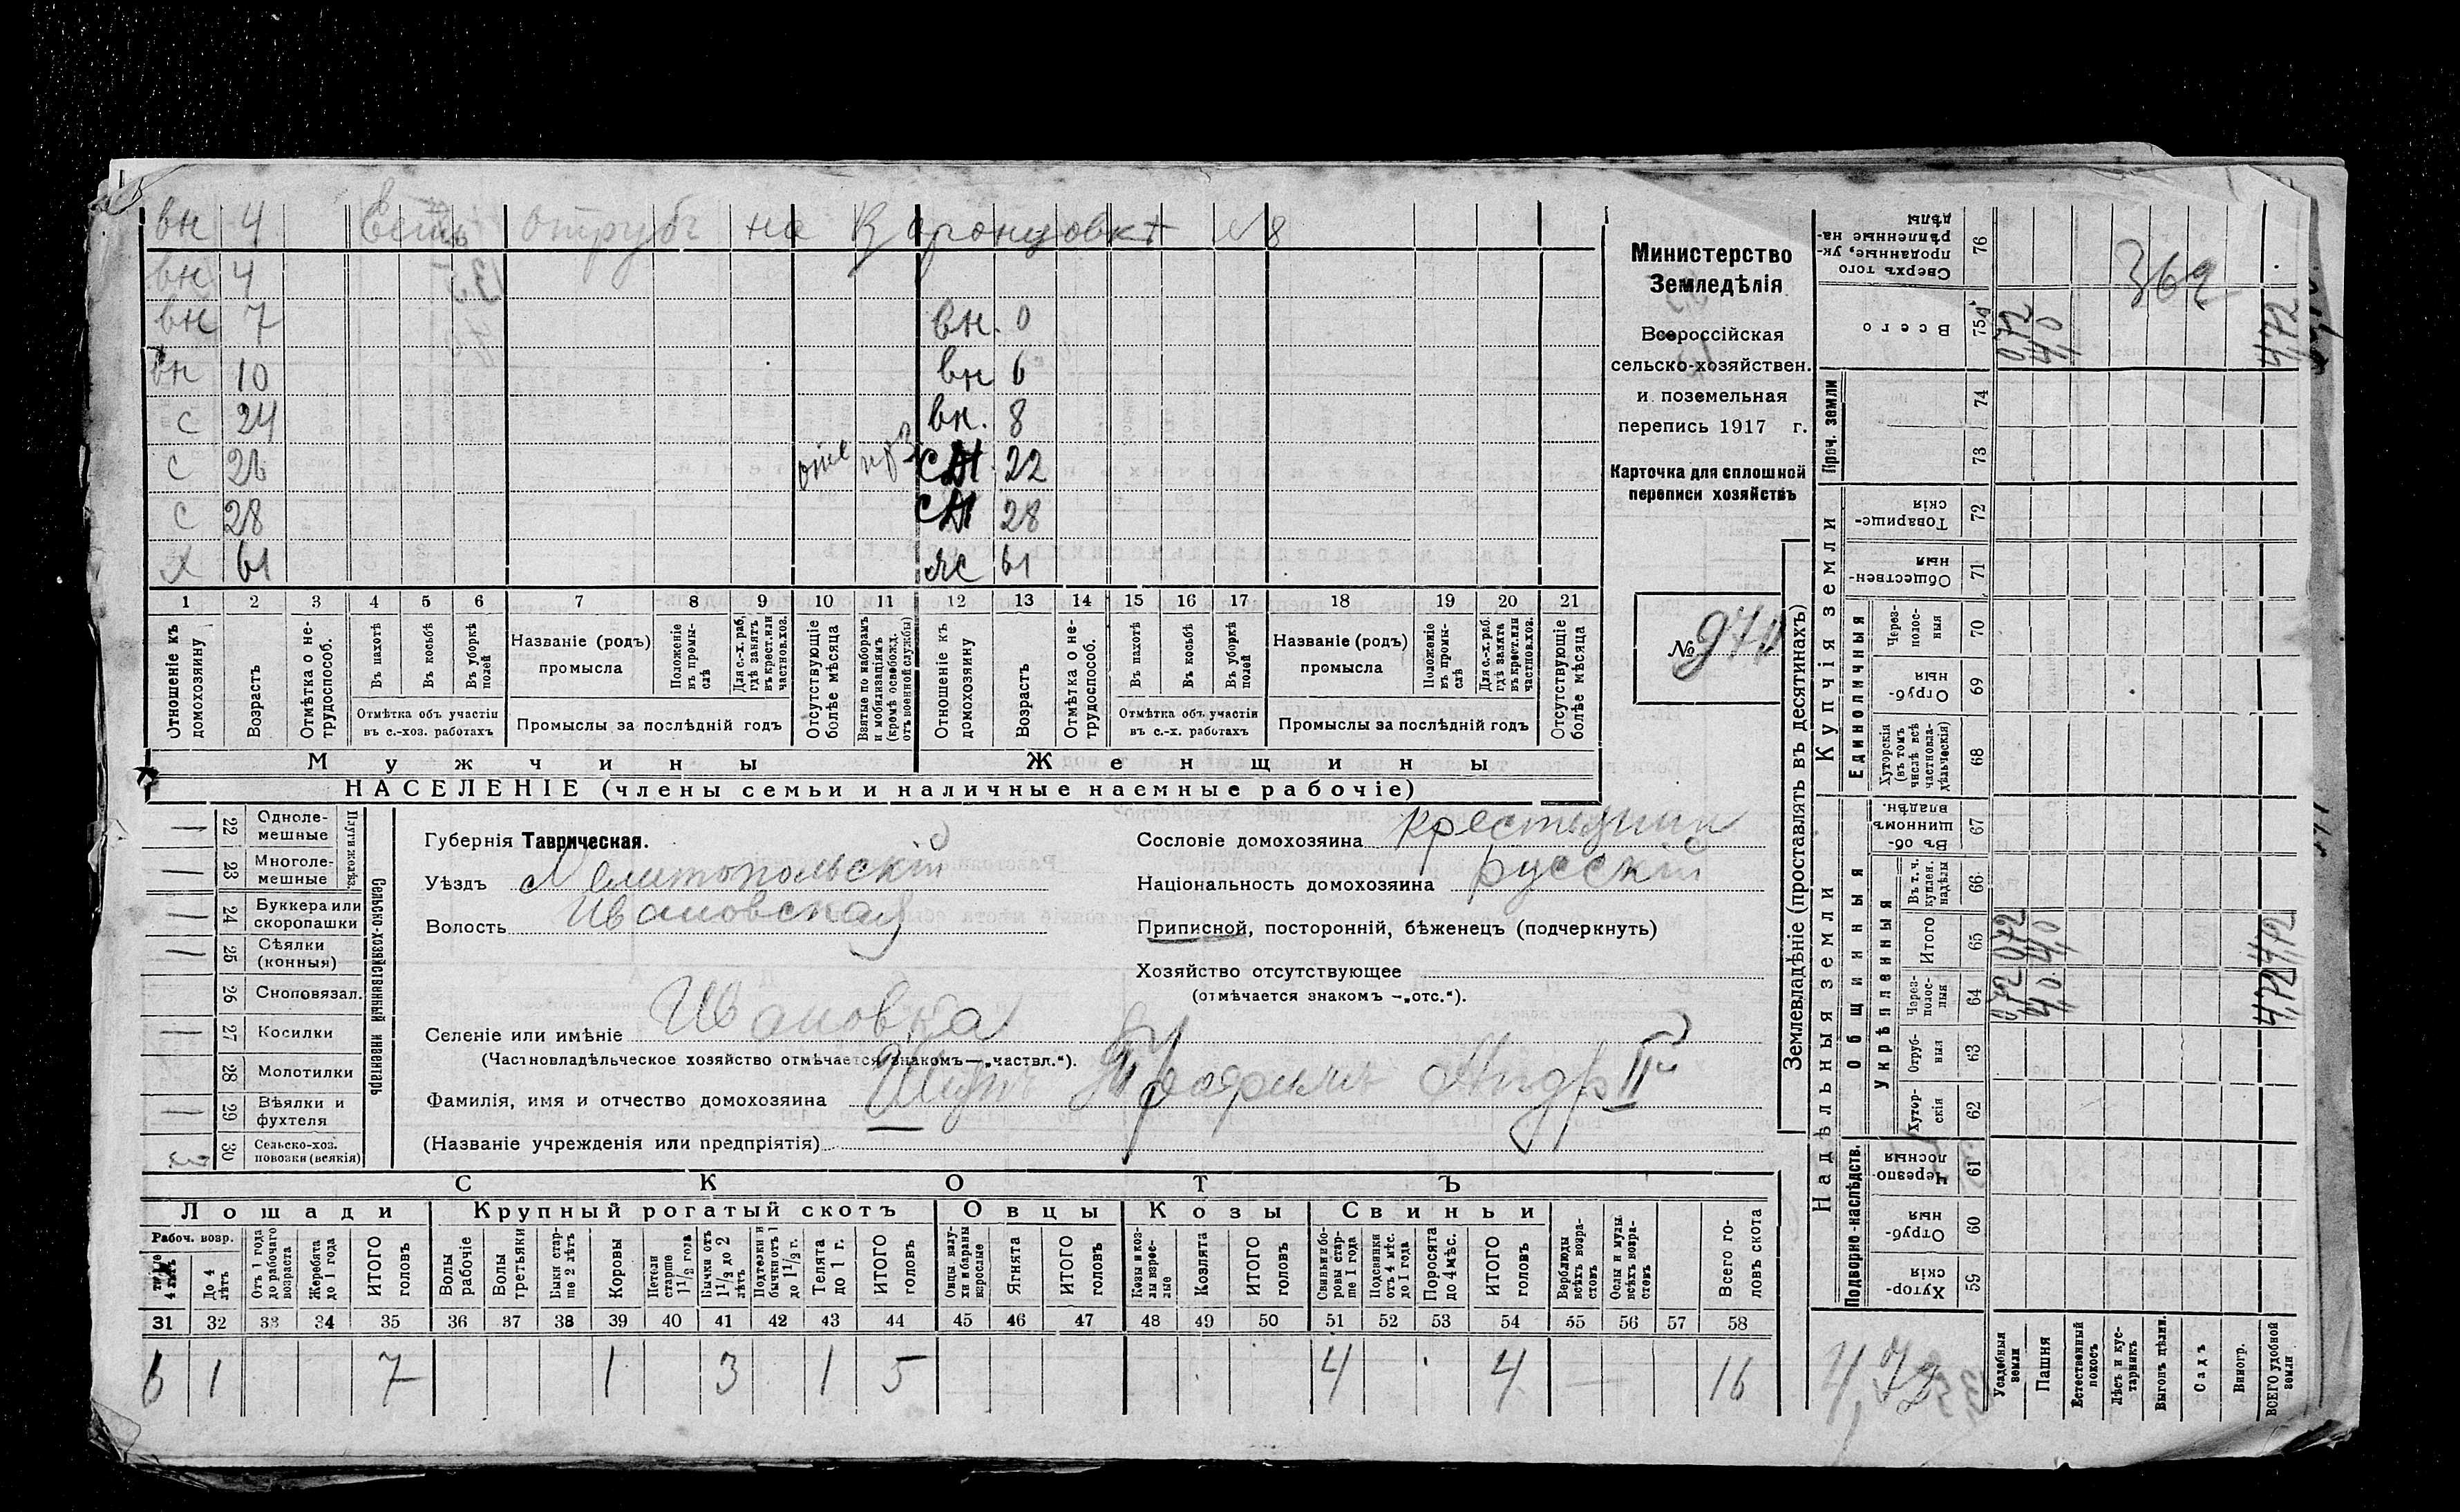 вн 4 Есть отруб на Воронцовкѣ №8
вн 4
вн 7 вн. 0
вн 10 вн 6
с 24 вн. 8
с 26 22
с 28 28
х 61 жс 61
1 2 3 4 5 6 7 8 9 10 11 12 13 14 15 16 17 18 19 20 21
Отношеніе къ домохозяину
Возрастъ
Отмѣтка о не-трудоспособ.
Въ пахотѣ
Въ косьбѣ
Въ уборкѣ полей
Отмѣтка объ участіи въ с.-хоз. работахъ
Названіе (родъ) промысла
Положеніе въ промы-слѣ
Для с.-х. раб, гдѣ занятъ въ крест. или частнов. хоз.
Промыслы за послѣдній годъ
Отсутствующіе болѣе мѣсяца
Взятые по наборамъ и мобилизаціямъ (кромѣ освобожд. отъ военной службы)
Отношеніе къ домохозяину
Возрастъ
Отмѣтка о не-трудоспособ.
Въ пахотѣ
Въ косьбѣ
Въ уборкѣ полей
Отмѣтка объ участіи въ с.-х. работахъ
Названіе (родъ) промысла
Положеніе въ промы-слѣ
Для с.-х. раб. гдѣ занята въ крест. или частнов. хоз.
Промыслы за послѣдній годъ
Отсутствующіе болѣе мѣсяца
Мужчины Женщины
НАСЕЛЕНІЕ (члены семьи и наличные наемные рабочіе)
Министерство
Земледѣлія
Всероссійская
сельско-хозяйствен.
и поземельная
перепись 1917 г.
Карточка для сплошной
переписи хозяйствъ
№
Сельско-хозяйственный инвентарь
Плуги желѣз.
22 Одноле-мешные
23 Многоле-мешные
24 Буккера или скоропашки
25 Сѣялки (конныя)
26 Сноповязал.
27 Косилки
28 Молотилки
29 Вѣялки и фухтеля
30 Сельско-хоз. повозки (всякія) 3
Губернія Таврическая.
Уѣздъ Мелитопольскій
Волость Ивановская
Селеніе или имѣніе Ивановка
(Частновладѣльческое хозяйство отмѣчается знакомъ—„частвл.“).
Фамилія, имя и отчество домохозяина
(Названіе учрежденія или предпріятія)
Сословіе домохозяина крестьянин
Національность домохозяина русскій
Приписной, посторонній, бѣженецъ (подчеркнуть)
Хозяйство отсутствующее
(отмѣчается знакомъ –„отс.“).
СКОТЪ
Лошади Крупный рогатый скотъ Овцы Козы Свиньи
Рабоч. возр.
4 лѣтъ
До 4 лѣтъ
Отъ 1 года до рабочаго возраста
Жеребята до 1 года
ИТОГО головъ
Волы рабочіе
Волы третьяки
Быки стар-ше 2 лѣтъ
Коровы
Нетели старше 1 1/2 года
Бычки отъ 1 1/2 до 2 лѣтъ
Подтелки и бычки отъ 1 до 1 1/2 г.
Телята до 1 г.
ИТОГО головъ
Овцы валу-хи и бараны взрослые
Ягнята
ИТОГО головъ
Козы и коз-лы взрос-лые
Козлята
ИТОГО головъ
Свиньи и бо-ровы стар-ше 1 года
Подсвинки отъ 4 мѣс. до 1 года
Поросята до 4 мѣс.
ИТОГО головъ
Верблюды всѣхъ возра-стовъ
Ослы и мулы всѣхъ возра-стовъ
Всего го-ловъ скота
31 32 33 34 35 36 37 38 39 40 41 42 43 44 45 46 47 48 49 50 51 52 53 54 55 56 57 58
6 1 7 1 3 1 5 4 4 16
Землевладѣніе (проставлять въ десятинахъ)
Надѣльныя земли
Купчія земли
Проч. земли
Подворно-наслѣдств.
Общинныя
Укрѣпленныя
Единоличныя
76 Сверхъ того проданные, ук-рѣпленные на-дѣлы
362
75 Всего 0,72 4,0 4,72
74
73
72 Товарище-скія
71 Обществен-ныя
70 Через-полос-ныя
69 Отруб-ныя
68 Хуторскія (въ томъ числѣ всѣ частновла-дѣльческія)
67 Въ об-щинномъ владѣн.
66 Въ т. ч. куплен. надѣлы
65 Итого 0,72 4,0 4,72
64 Через-полос-ныя 0,72 4,0 4,72
63 Отруб-ныя
62 Хутор-скія
61 Черезпо-лосныя
60 Отруб-ныя
59 Хутор-скія
4,72
Усадебныя земли
Пашня
Естественный покосъ
Лѣсъ и кус-тарникъ
Выгонъ цѣлин.
Садъ
Виногр.
ВСЕГО удобной земли